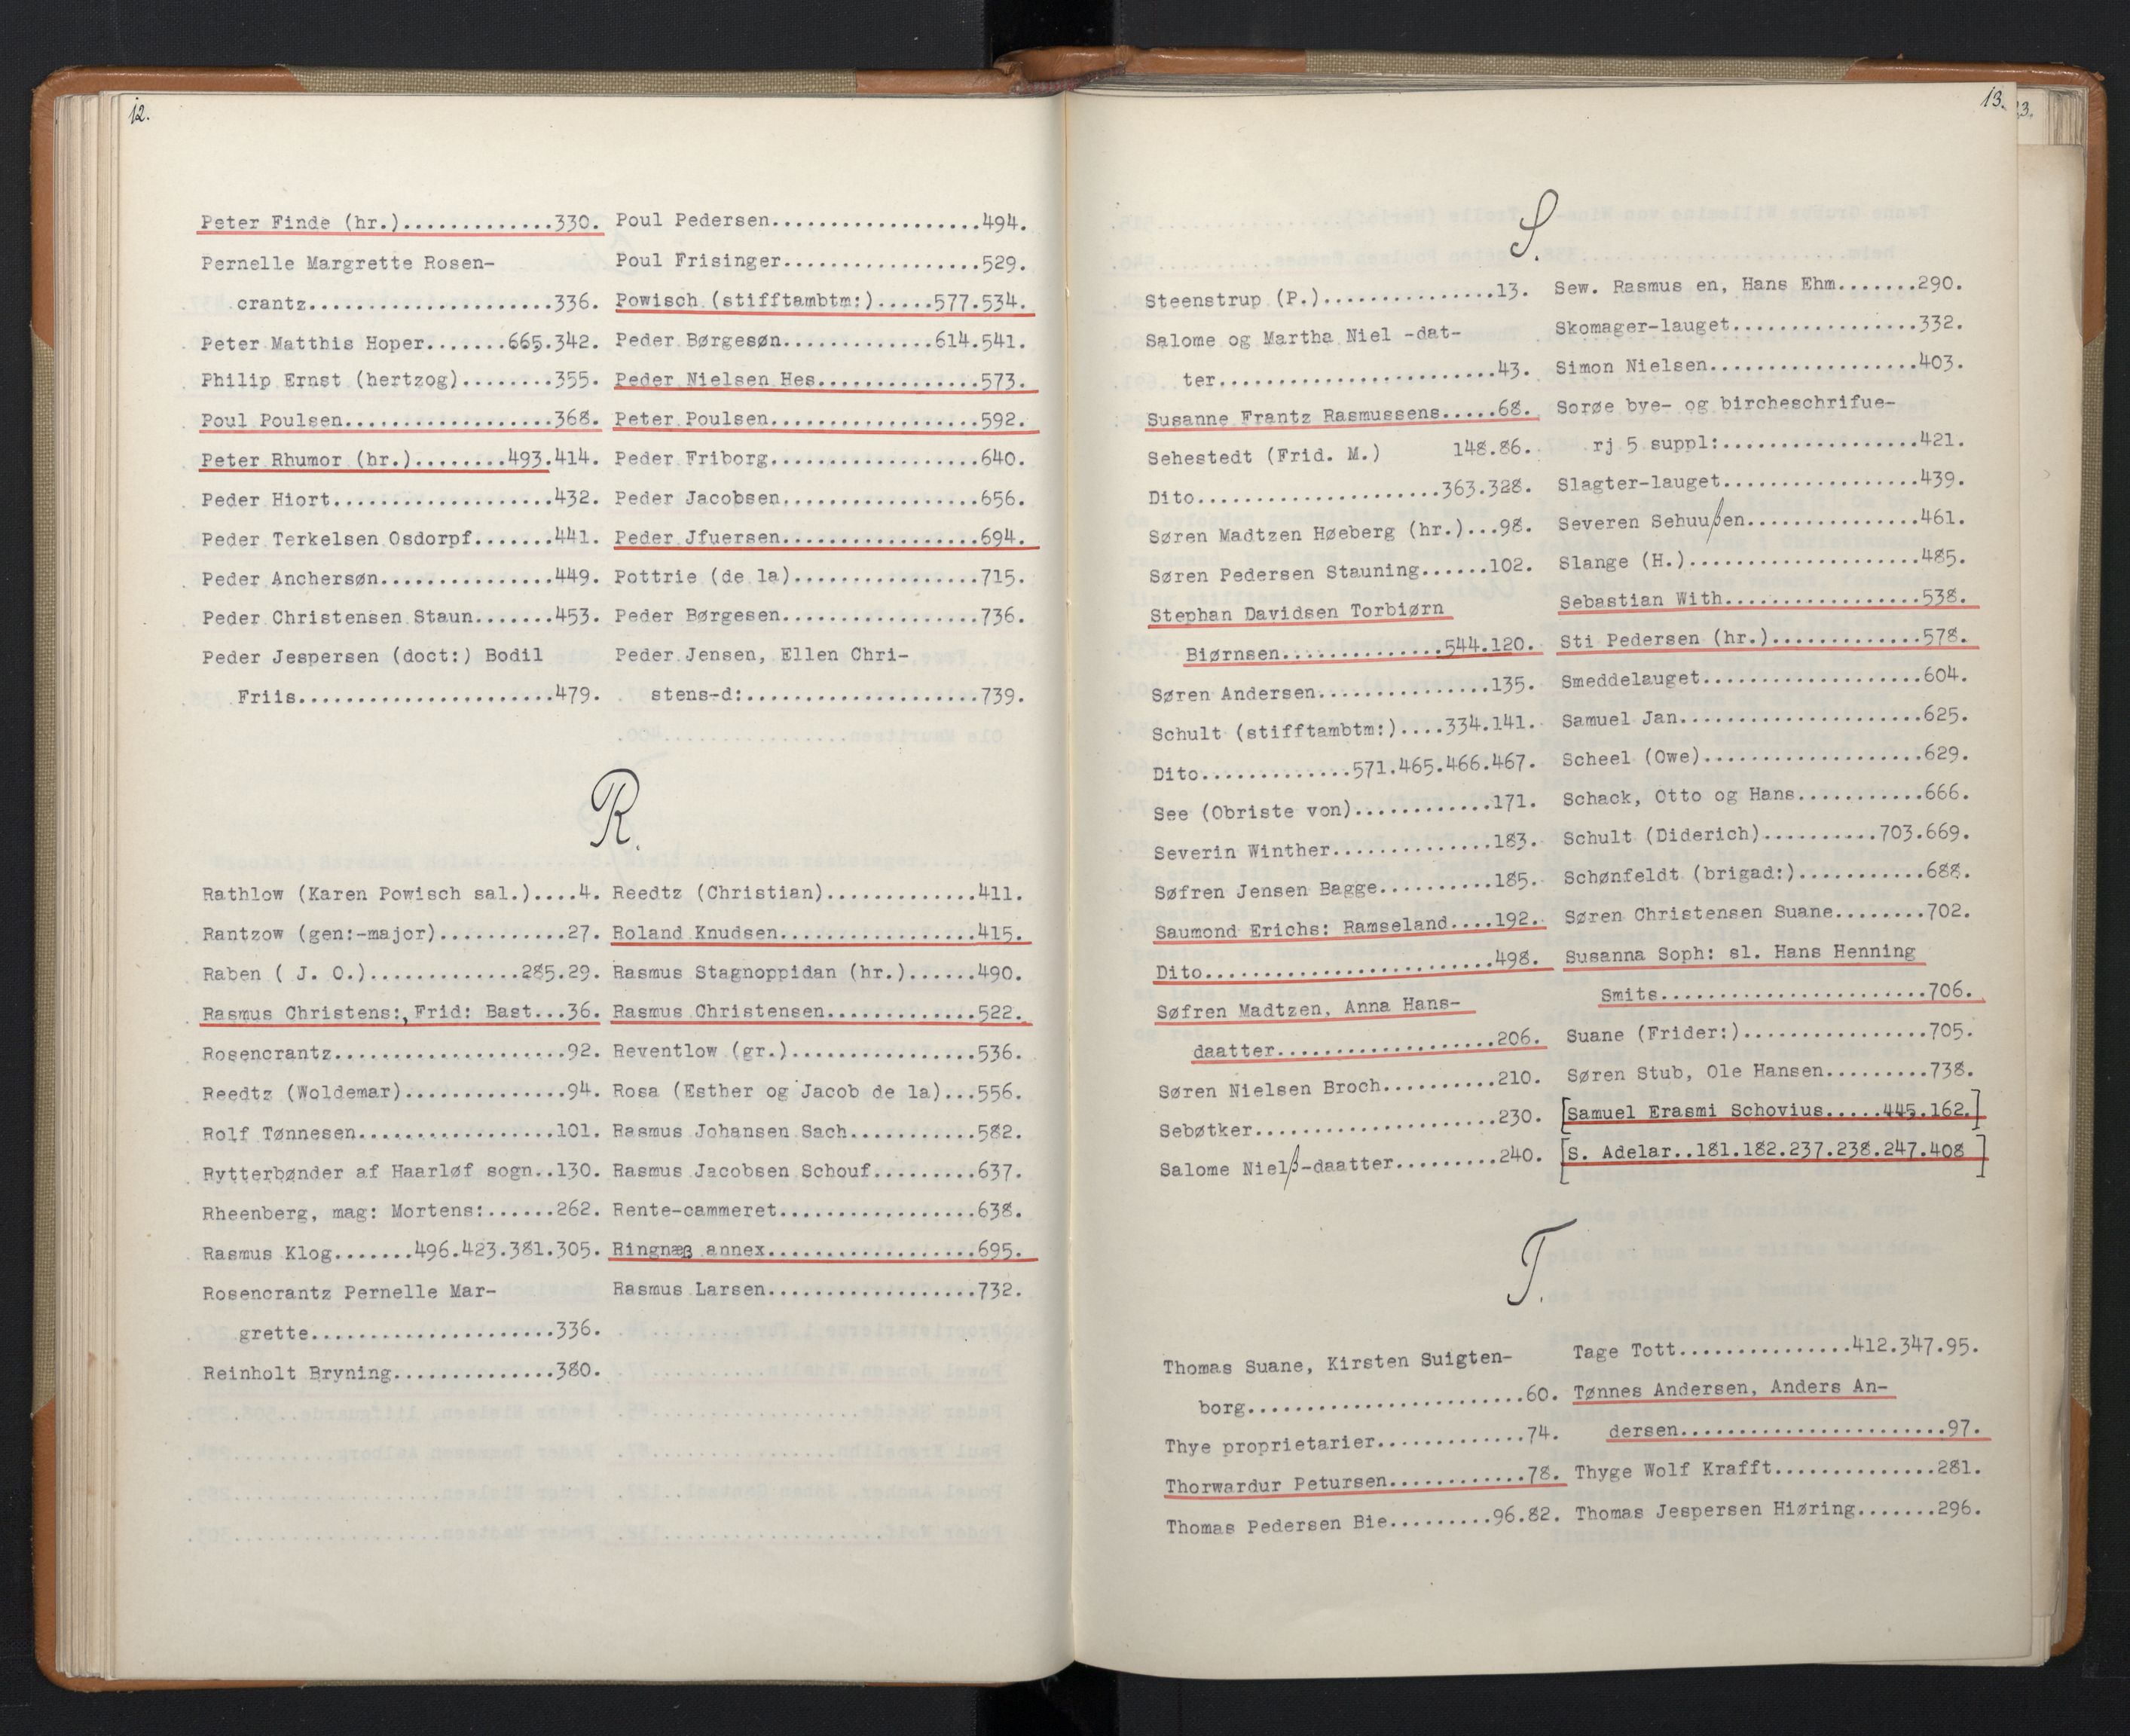 12.
Peter Finde (hr.).............330.
Pernelle Margrette Rosen-
crantz.....................336.
Peter Matthis Hoper.......665.342.
Philip Ernst (hertzog)........355.
Poul Poulsen..................368.
Peter Rhumor (hr.)........493.414.
Peder Hiort...................432.
Peder Terkelsen Osdorpf.......441.
Peder Anchersøn...............449.
Peder Christensen Staun.......453.
Peder Jespersen (doct:) Bodil
Friis......................479.
Poul Pedersen..................494.
Poul Frisinger.................529.
Powisch (stifftambtm:).....577.534.
Peder Børgesøn.............614.541.
Peder Nielsen Hes..............573.
Peter Poulsen..................592.
Peder Friborg..................640.
Peder Jacobsen.................656.
Peder Jfuersen.................694.
Pottrie (de la)................715.
Peder Børgesen.................736.
Peder Jensen, Ellen Chri-
stens-d:....................739.
R.
Rathlow (Karen Powisch sal.)....4.
Rantzow (gen:-major)...........27.
Raben ( J. O.).............285.29.
Rasmus Christens:, Frid: Bast...36.
Rosencrantz....................92.
Reedtz (Woldemar)..............94.
Rolf Tønnesen.................101.
Rytterbønder af Haarløf sogn..130.
Rheenberg, mag: Mortens:......262.
Rasmus Klog.......496.423.381.305.
Rosencrantz Pernelle Mar-
grette.....................336.
Reinholt Bryning..............380.
Reedtz (Christian).............411.
Roland Knudsen.................415.
Rasmus Stagnoppidan (hr.)......490.
Rasmus Christensen.............522.
Reventlow (gr.)................536.
Rosa (Esther og Jacob de la)...556.
Rasmus Johansen Sach...........582.
Rasmus Jacobsen Schouf.........637.
Rente-cammeret.................638.
Ringnæß annex..................695.
Rasmus Larsen..................732.
13.
S.
Steenstrup (P.)...............13.
Salome og Martha Niel -dat-
ter........................43.
Susanne Frantz Rasmussens.....68.
Sehestedt (Frid. M.) 148.86.
Dito.....................363.328.
Søren Madtzen Høeberg (hr.)...98.
Søren Pedersen Stauning......102.
Stephan Davidsen Torbiørn
Biørnsen..............544.120.
Søren Andersen...............135.
Schult (stifftambtm:)....334.141.
Dito.............571.465.466.467.
See (Obriste von)............171.
Severin Winther..............183.
Søfren Jensen Bagge..........185.
Saumond Erichs: Ramseland....192.
Dito.........................498.
Søfren Madtzen, Anna Hans-
daatter...................206.
Søren Nielsen Broch..........210.
Sebøtker.....................230.
Salome Nielß-daatter.........240.
Sew. Rasmus en, Hans Ehm.......290.
Skomager-lauget................332.
Simon Nielsen..................403.
Sorøe bye- og bircheschrifue-
rj 5 suppl:.................421.
Slagter-lauget.................439.
Severen Sehuußen...............461.
Slange (H.)....................485.
Sebastian With.................538.
Sti Pedersen (hr.).............578.
Smeddelauget...................604.
Samuel Jan.....................625.
Scheel (Owe)...................629.
Schack, Otto og Hans...........666.
Schult (Diderich)..........703.669.
Schønfeldt (brigad:)...........688.
Søren Christensen Suane........702.
Susanna Soph: sl. Hans Henning
Smits.......................706.
Suane (Frider:)................705.
Søren Stub, Ole Hansen.........738.
[Samuel Erasmi Schovius.....445.162.]
[S. Adelar..181.182.237.238.247.408 ]
T.
Thomas Suane, Kirsten Suigten-
borg........................60.
Thye proprietarier.............74.
Thorwardur Petursen............78.
Thomas Pedersen Bie.........96.82.
Tage Tott...............412.347.95.
Tønnes Andersen, Anders An-
dersen.......................97.
Thyge Wolf Krafft..............281.
Thomas Jespersen Hiøring.......296.